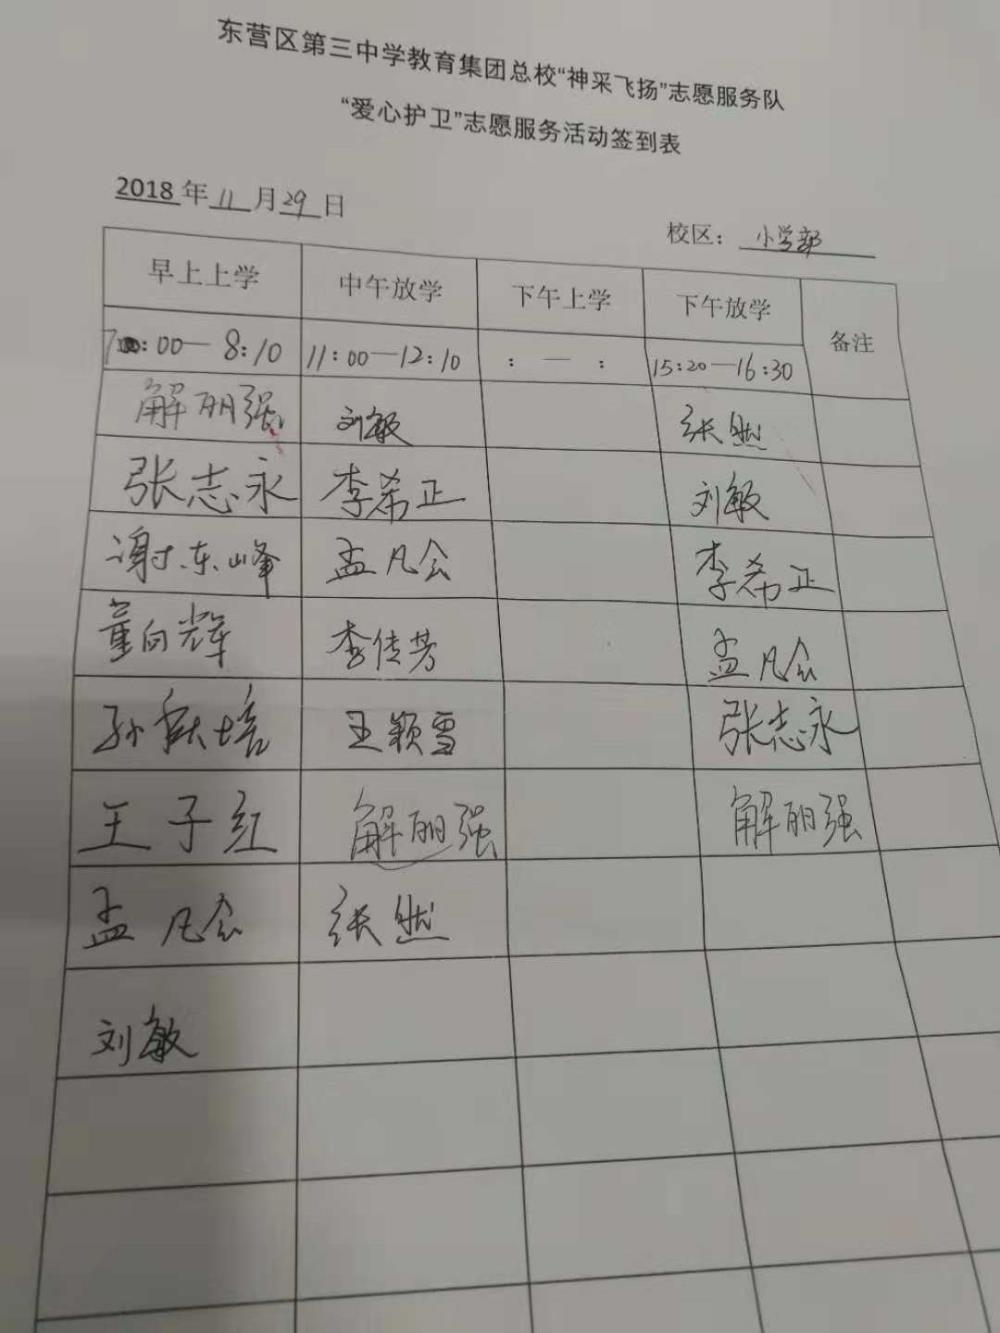 东营区第三中学教育集团总校“神采飞扬”志愿服务队
“爱心护卫”志愿服务活动签到表
2018年11月29日
校区：小学部
早上上学 中午放学 下午上学 下午放学 备注
7:00—8:10 11:00—12:10 : — : 15:20—16:30
解丽强 刘敏 张燃
张志永 李希正 刘敏
谢东峰 孟凡会 李希正
董向辉 李传芳 孟凡会
孙 培 王颖雪 张志永
王子红 解丽强 解丽强
孟凡会 张燃
刘敏